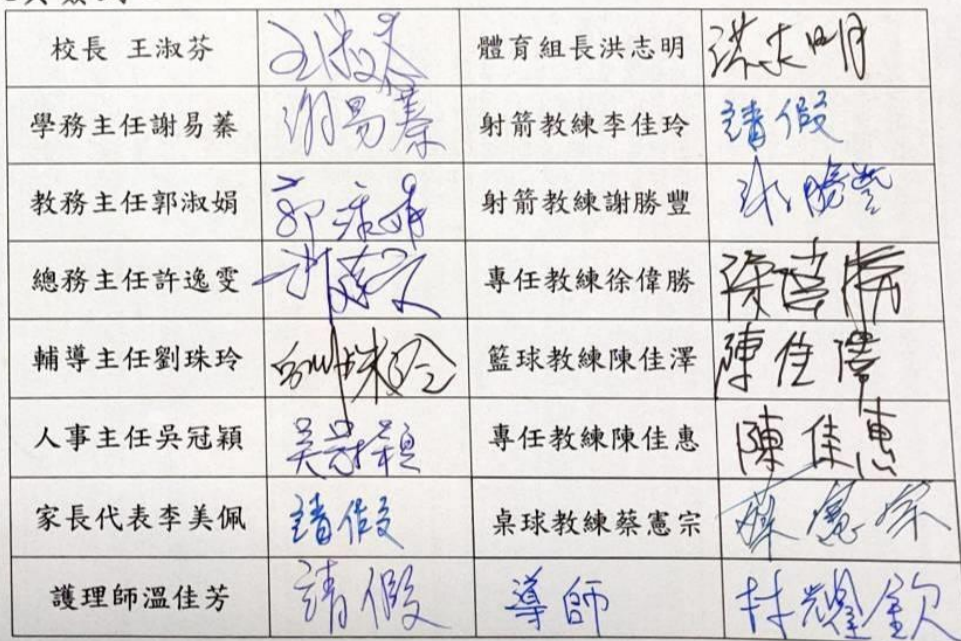 校長 王淑芬 王淑芬 體育組長洪志明 洪志明
學務主任謝易蓁 謝易蓁 射箭教練李佳玲 請假
教務主任郭淑娟 郭淑娟 射箭教練謝勝豐 謝勝豐
總務主任許逸雯 許逸雯 專任教練徐偉勝 徐偉勝
輔導主任劉珠玲 劉珠玲 籃球教練陳佳澤 陳佳澤
人事主任吳冠穎 吳冠穎 專任教練陳佳惠 陳佳惠
家長代表李美佩 請假 桌球教練蔡憲宗 蔡憲宗
護理師溫佳芳 請假 導師 林耀欽